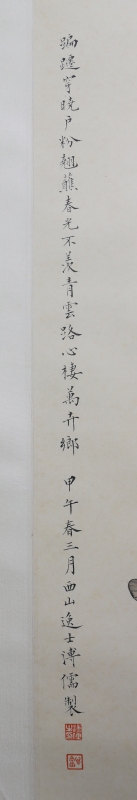 蹁躚穿曉戶粉翅蘸春光不羨青雲路心棲萬卉鄉 甲午春三月西山逸士溥儒製